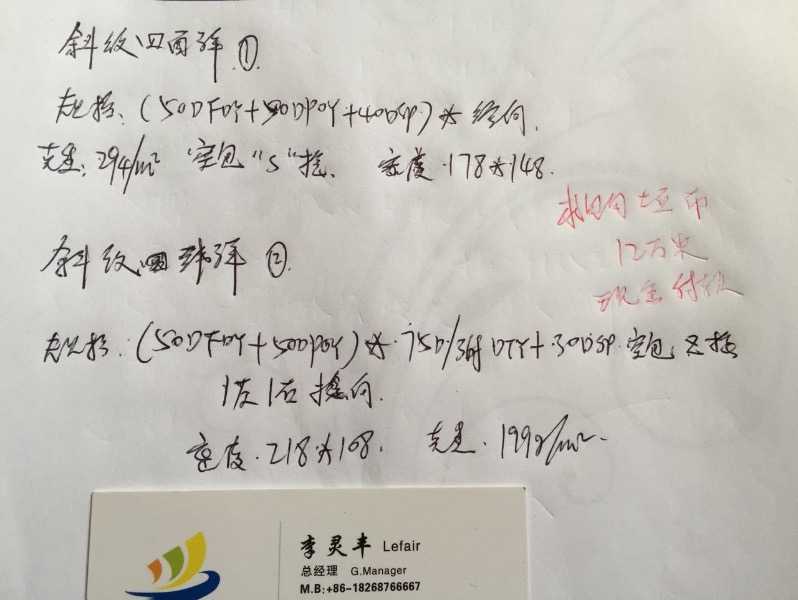 斜纹四面弹①.
规格:(50DFDY+50DPOY+40DSP)* 经向.
克重:294/m² 空包"S"捻. 密度.178*148.
求购白坯布
12万米
现金付款
斜纹 弹②.
规格:(50DFDY+50DPOY)*.75D/36f DTY+30DSP.空包 捻
1左1右 捻向.
密度.218*108. 克重.199g/m².
李灵丰 Lefair
总经理 G.Manager
M.B:+86-18268766667